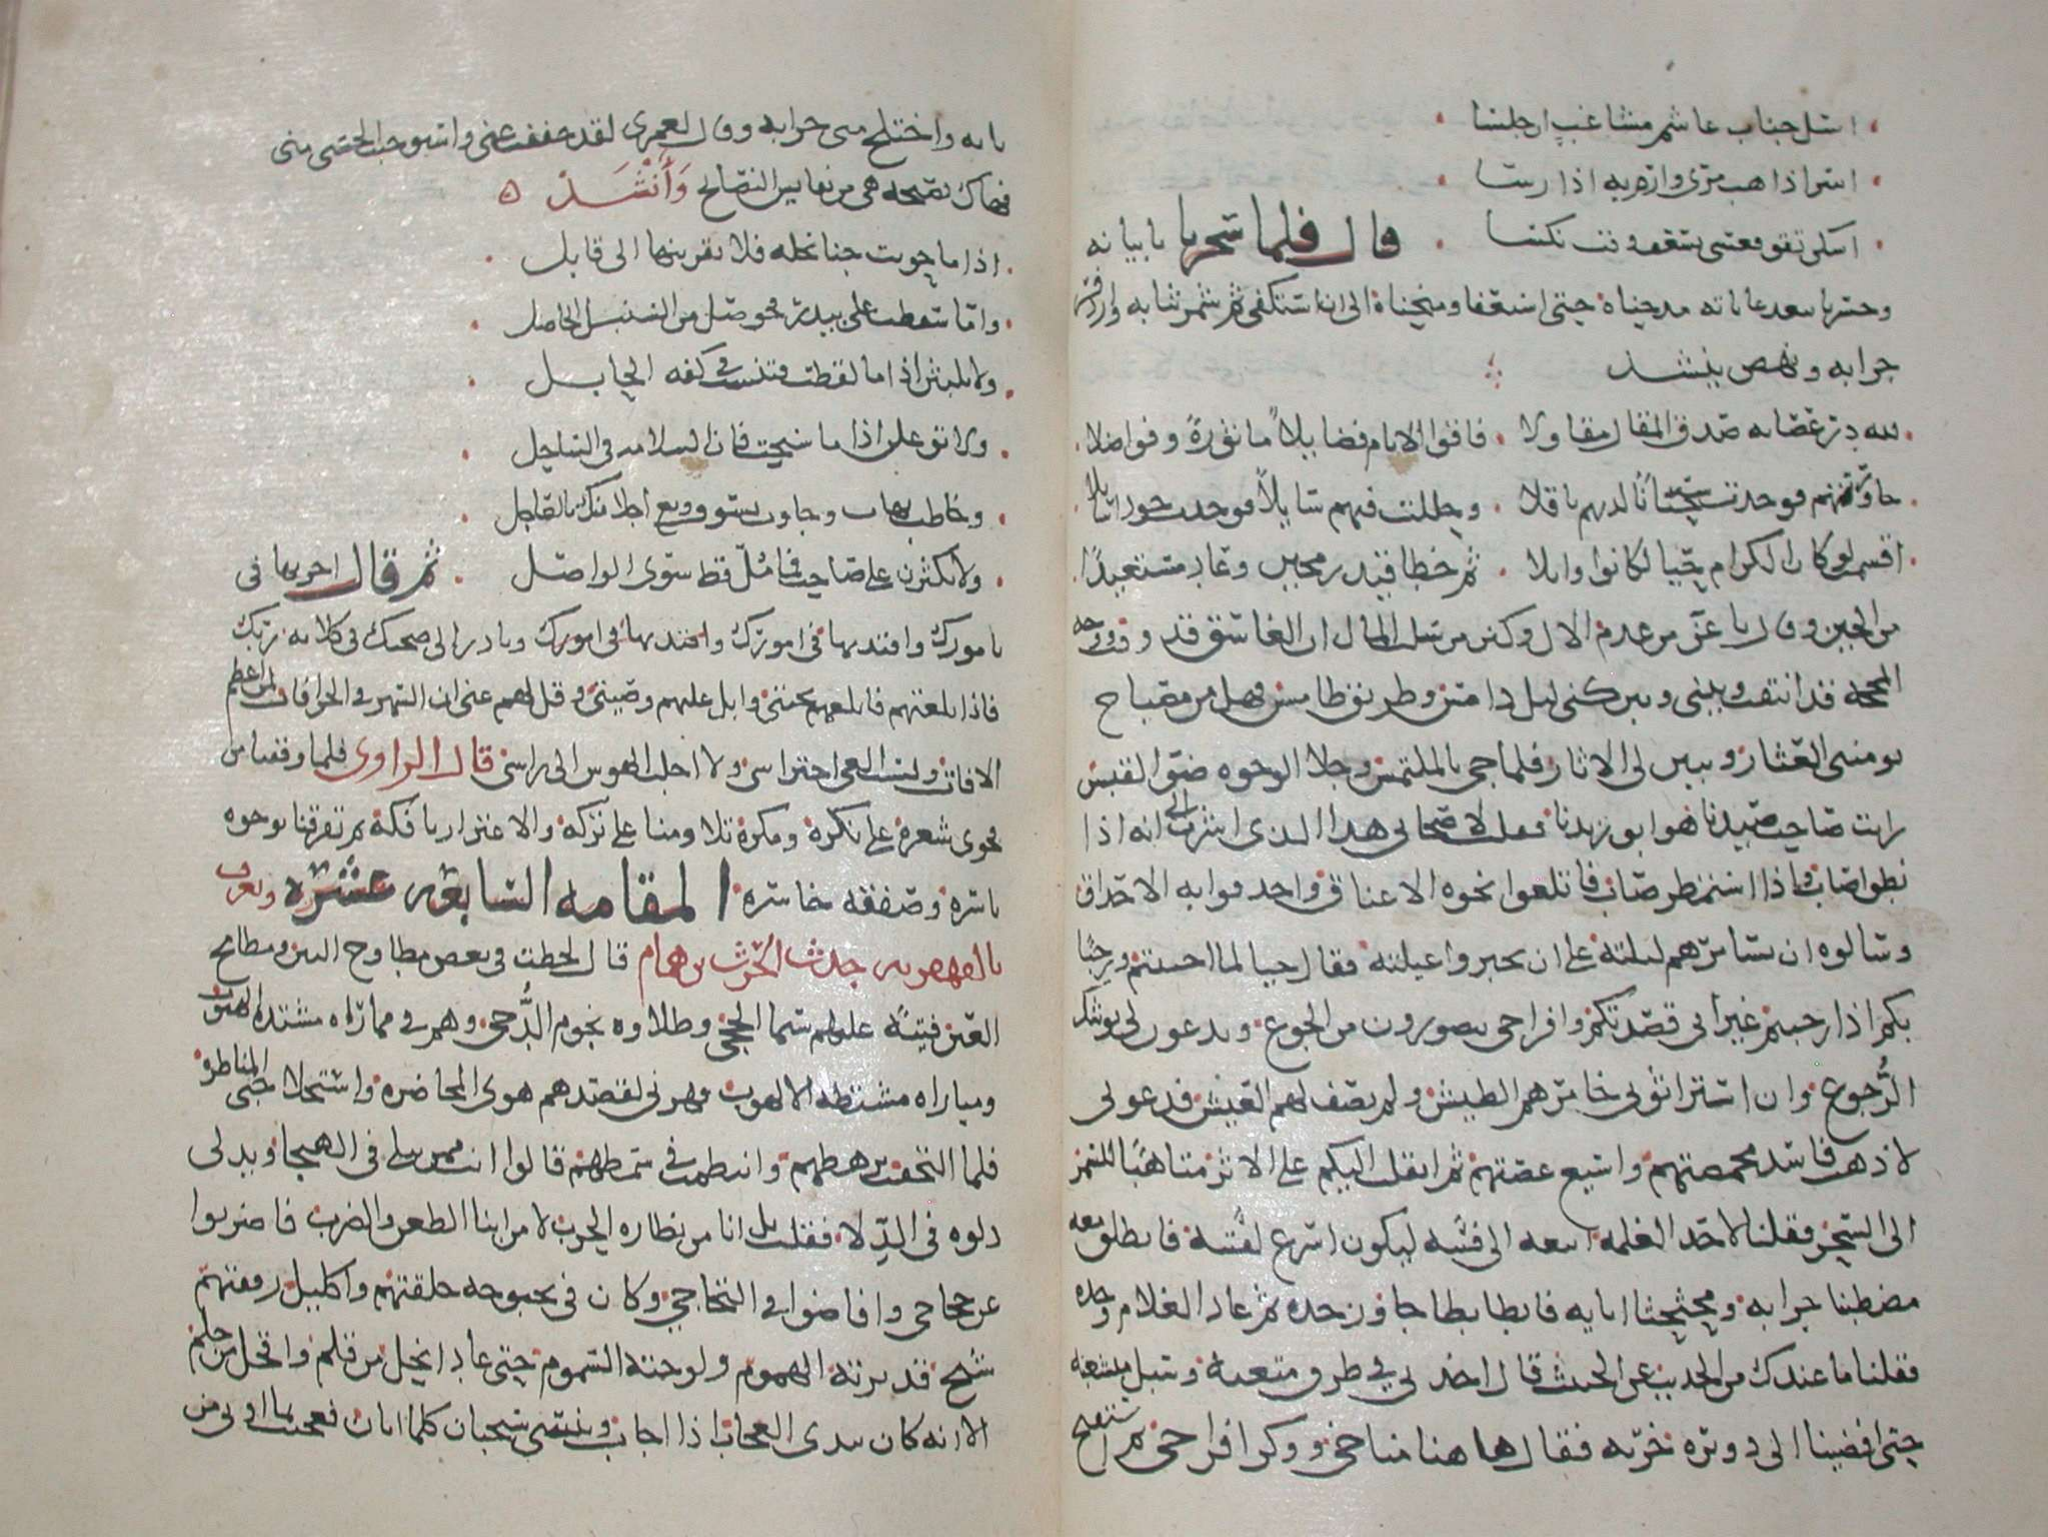 اسل جناب غاشم مشاغب ان جلسا
اسر اذا هب مرى وارم به اذا رسا
اسكن تقو فعسى يسعف وقت نكسا قال فلما سحرنا باياته
وحسرنا ببعد غاياته مدحناه حتى استعفى ومنحناه الى ان استكفى ثم شمر ثيابه وازدفر
جرابه ونهض ينشد
لله در عصابه صدق المقال مقاولا فاقوا الانام فضايلاً ماثورةً وفواضلا
حاورتهم فوجدت سحباناً لديهم باقلا وحللت فيهم سايلاً فوجدت جوداً سايلا
اقسمت لو كان الكرام حيا لكانوا وابلا ثم خطا قيد رمحين وعاد مستعيذاً
من الحين وقال يا عز من عدم الال وكنز من سلب المال ان الغاسق قد وقب ووجه
المحجه قد انتقب وبيني وبين كني ليل دامس وطريق طامس فهل من مصباح
يومنني العثار ويبين لي الاثار فلما جي بالملتمس وجلا الوجوه ضو القبس
رايت صاحب صيدنا هو ابو زيدنا فقلت لاصحابي هذا الذي اشرت الى انه اذا
نطق اصاب واذا استمطر صاب فاتلعوا نحوه الاعناق واحدقوا به الاحداق
وسالوه ان يسامرهم ليلته على ان يجبروا عيلته فقال حبا لما احببتم ورحبا
بكم اذا رحبتم غير اني قصدتكم وافراخي يتضورون من الجوع ويدعون لي بوشك
الرجوع وان استراثوني خامرهم الطيش ولم يصف لهم العيش فدعوني
لاذهب فاسد مخمصتهم واسيغ غصتهم ثم انقلب اليكم على الاثر متاهبا للسمر
الى السحر فقلنا لاحد الغلمه اتبعه الى فئته ليكون اسرع لفيئته فانطلق معه
مضطبنا جرابه ومحثحثا ايابه فابطا بطا جاوز حده ثم عاد الغلام وحده
فقلنا ما عندك من الحديث عن الخبيث قال اخذ بي في طرق متعبه وسبل متشعبه
حتى افضينا الى دويره خربه فقال هاهنا مناخي ووكر افراخي ثم استفتح
بابه واختلج مني جرابه وقال لعمري لقد خففت عني واستوجبت الحسنى مني
فهاك نصيحه هي من نفايس النصايح وأنشد
اذا ما حويت جنا نخله فلا تقربنها الى قابل
واما سقطت على بيدر فحوصل من السنبل الحاصل
ولا تلبثن اذا ما لقطت فتنشب في كفه الحابل
ولا توغلن اذا ما سبحت فان السلامه في الساحل
وخاطب بهات وجاوب بسوف وبع اجلا منك بالعاجل
ولا تكثرن على صاحب فما مل قط سوى الواصل ثم قال اخزنها في
تامورك واقتد بها في امورك وبادر الى صحبك في كلاءه ربك
فاذا بلغتهم فابلغهم تحيتي واتل عليهم وصيتي وقل لهم عني ان السهر في الخرافات لمن اعظم
الافات ولست الغي احتراسي ولا اجلب الهوس الى راسي قال الراوي فلما وقفنا من
فحوى شعره على نكره ومكره تلاومنا على تركه والاغترار بافكه ثم تفرقنا بوجوه
باسره وصفقه خاسره المقامه السابعه عشره وتعرف
بالقهقريه حدث الحرث بن همام قال لحظت في بعض مطاوح البين ومطامح
العين فتيه عليهم سما الحجى وطلاوه نجوم الدجى وهم في مماراه مشتده الهبوب
ومباراه مشتطه الالهوب فهزني لقصدهم هوى المحاضره واستحلا جنى المناظره
فلما التحقت برهطهم وانتظمت في سمطهم قالوا اانت ممن يبلى في الهيجا ويدلي
دلوه في الدلا فقلت بل انا من نظاره الحرب لا من ابنا الطعن والضرب فاضربوا
عن حجاجي وافاضوا في التحاجي وكان في بحبوحه حلقتهم واكليل رفقتهم
شيخ قد برته الهموم ولوحته السموم حتى عاد انحل من قلم واقحل من جلم
الا انه كان يبدي العجاب اذا اجاب وينسي سحبان كلما ابان فعجبت بما اوتي من